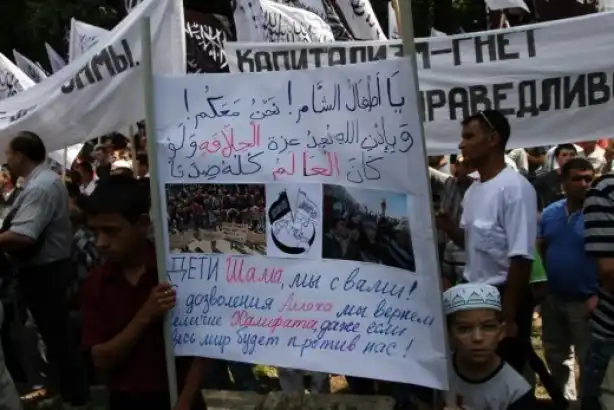 КАПИТАЛИЗМ-ГНЕТ
РАВЕДЛИВО
يا أطفال الشام! نحن معكم!
وبإذن الله نعيد عزة الخلافة ولو
كان العالم كله ضدنا
ДЕТИ Шама, мы с вами!
С дозволения Аллаха мы вернем
величие Халифата даже если
весь мир будет против нас!